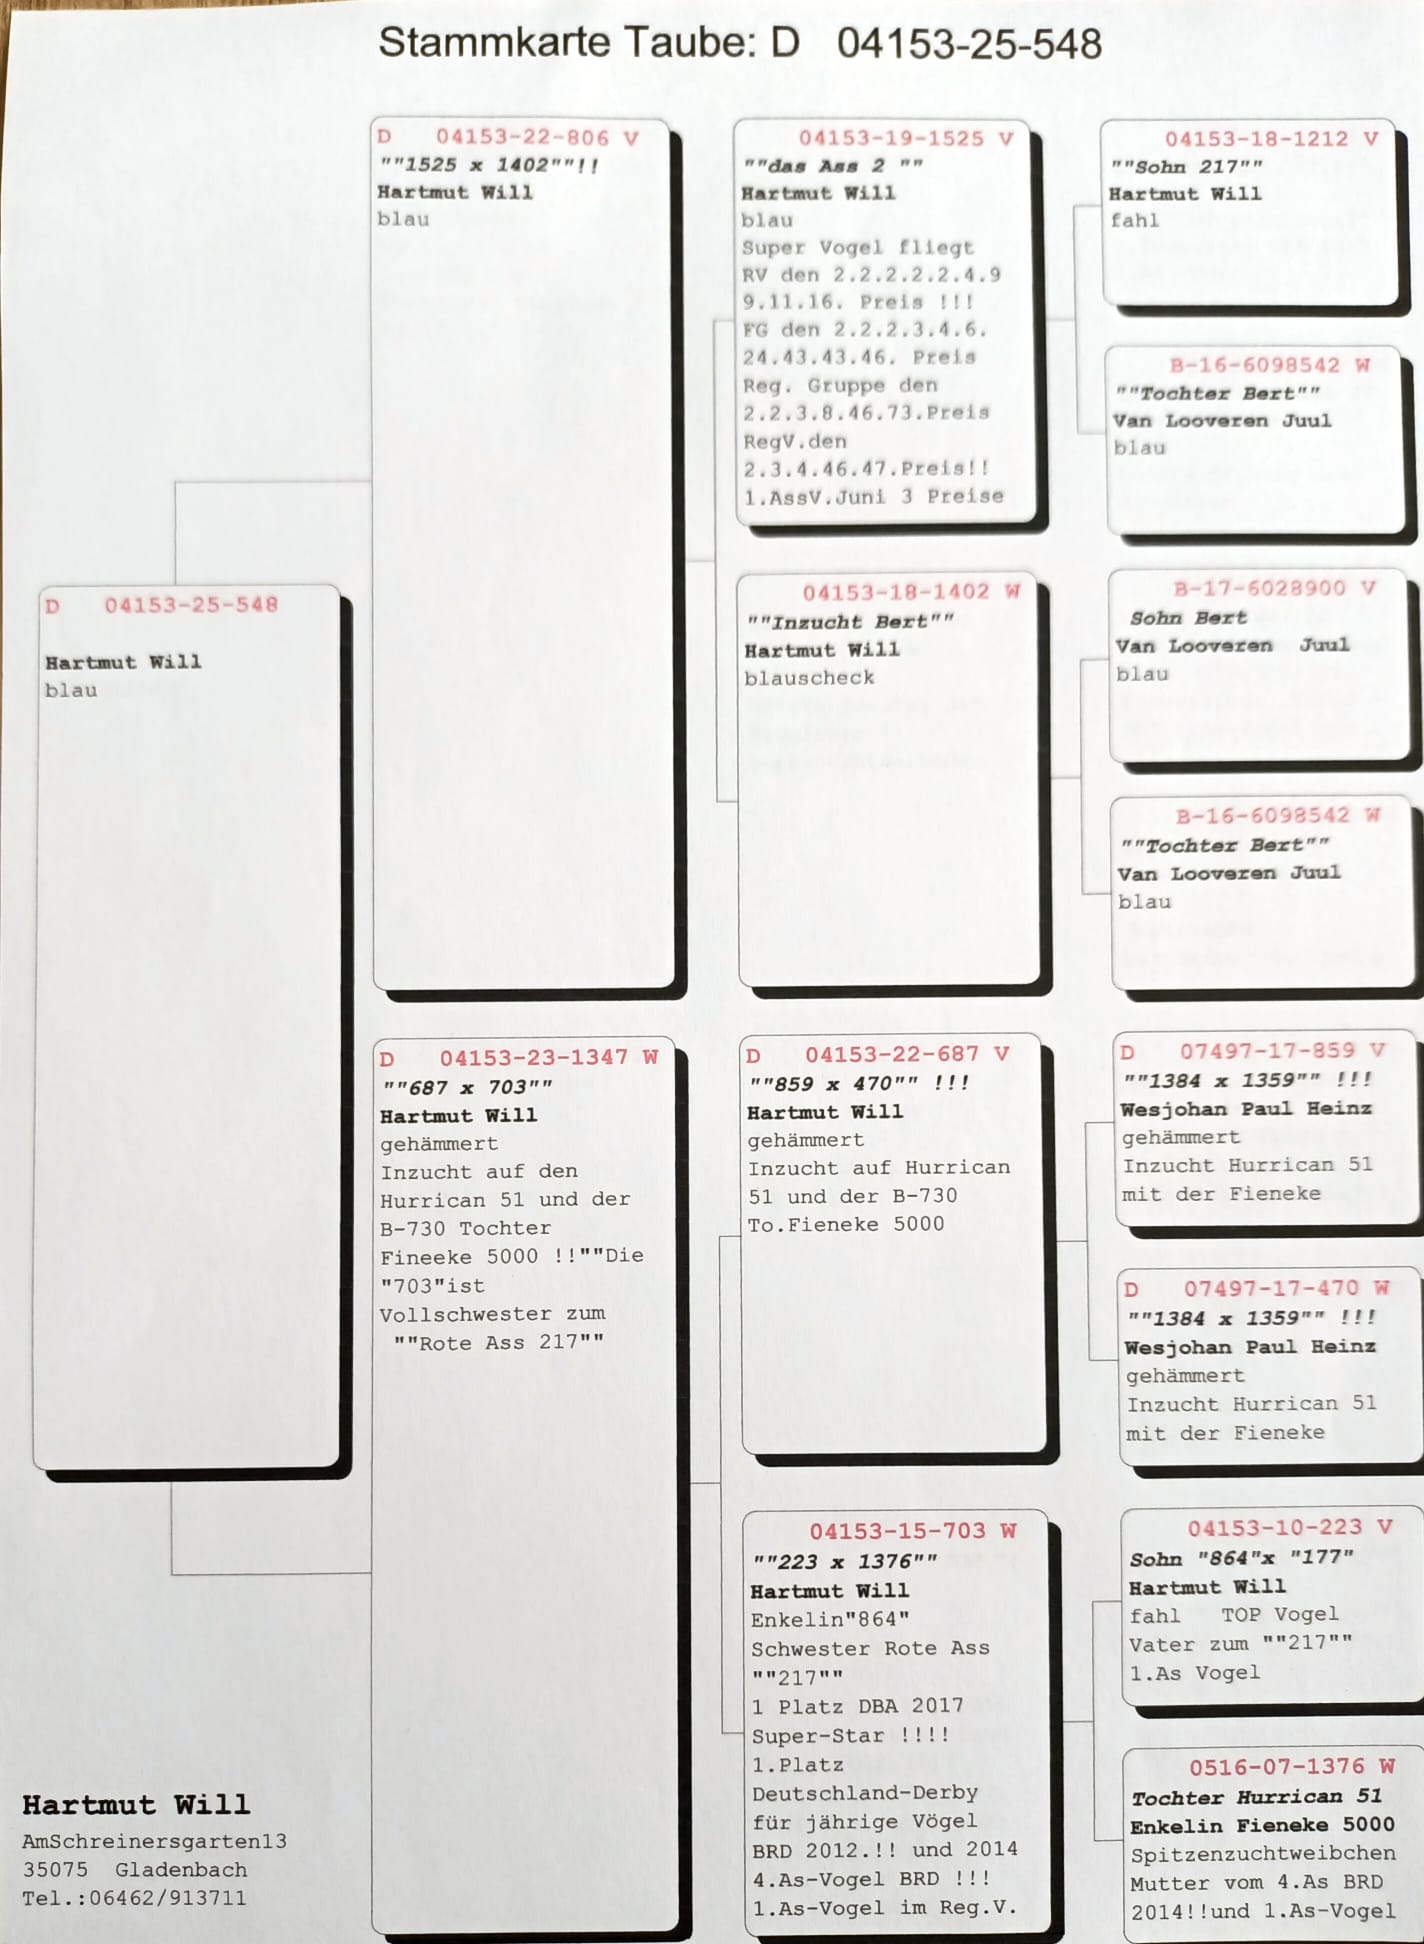 Stammkarte Taube: D 04153-25-548
D 04153-25-548
Hartmut Will
blau
D 04153-22-806 V
""1525 x 1402""!!
Hartmut Will
blau
D 04153-23-1347 W
""687 x 703""
Hartmut Will
gehämmert
Inzucht auf den
Hurrican 51 und der
B-730 Tochter
Fineeke 5000 !!""Die
"703"ist
Vollschwester zum
""Rote Ass 217""
04153-19-1525 V
""das Ass 2 ""
Hartmut Will
blau
Super Vogel fliegt
RV den 2.2.2.2.2.4.9
9.11.16. Preis !!!
FG den 2.2.2.3.4.6.
24.43.43.46. Preis
Reg. Gruppe den
2.2.3.8.46.73.Preis
RegV.den
2.3.4.46.47.Preis!!
1.AssV.Juni 3 Preise
04153-18-1402 W
""Inzucht Bert""
Hartmut Will
blauscheck
D 04153-22-687 V
""859 x 470"" !!!
Hartmut Will
gehämmert
Inzucht auf Hurrican
51 und der B-730
To.Fieneke 5000
04153-15-703 W
""223 x 1376""
Hartmut Will
Enkelin"864"
Schwester Rote Ass
""217""
1 Platz DBA 2017
Super-Star !!!!
1.Platz
Deutschland-Derby
für jährige Vögel
BRD 2012.!! und 2014
4.As-Vogel BRD !!!
1.As-Vogel im Reg.V.
04153-18-1212 V
""Sohn 217""
Hartmut Will
fahl
B-16-6098542 W
""Tochter Bert""
Van Looveren Juul
blau
B-17-6028900 V
Sohn Bert
Van Looveren Juul
blau
B-16-6098542 W
""Tochter Bert""
Van Looveren Juul
blau
D 07497-17-859 V
""1384 x 1359"" !!!
Wesjohan Paul Heinz
gehämmert
Inzucht Hurrican 51
mit der Fieneke
D 07497-17-470 W
""1384 x 1359"" !!!
Wesjohan Paul Heinz
gehämmert
Inzucht Hurrican 51
mit der Fieneke
04153-10-223 V
Sohn "864"x "177"
Hartmut Will
fahl TOP Vogel
Vater zum ""217""
1.As Vogel
0516-07-1376 W
Tochter Hurrican 51
Enkelin Fieneke 5000
Spitzenzuchtweibchen
Mutter vom 4.As BRD
2014!!und 1.As-Vogel
Hartmut Will
AmSchreinersgarten13
35075 Gladenbach
Tel.:06462/913711